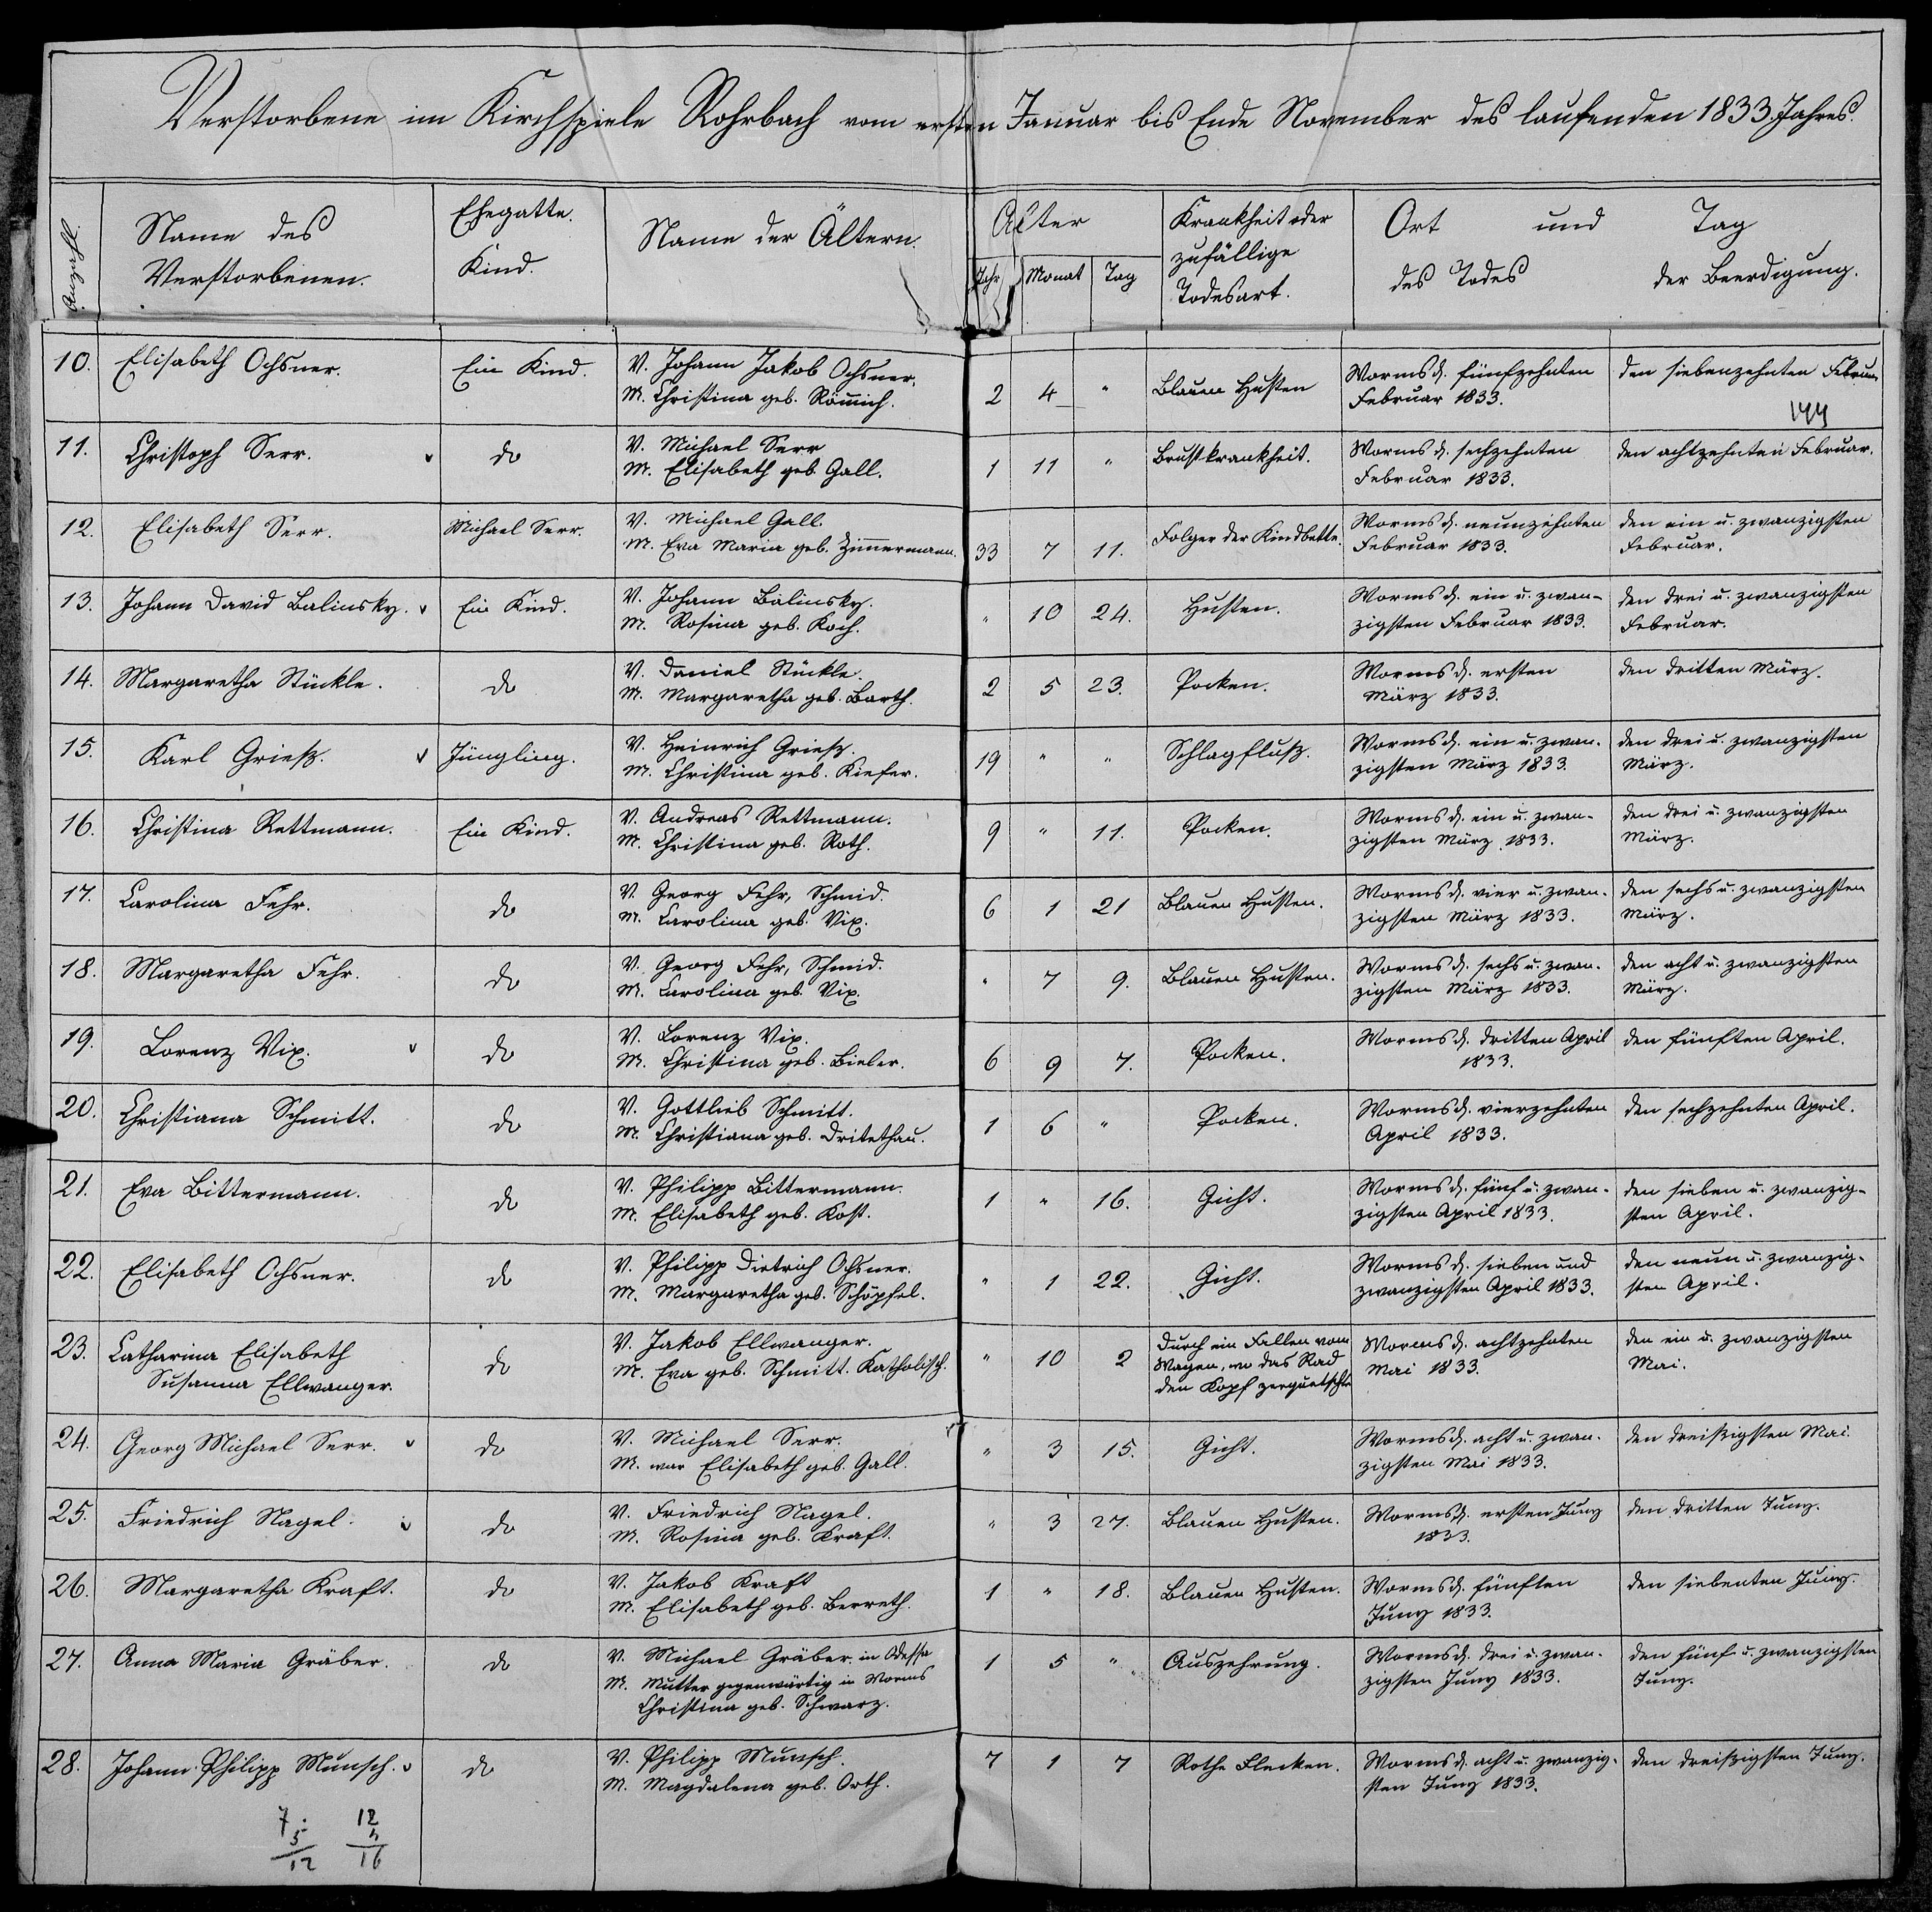 Verstorbene im Kirchspiele Rohrbach vom ersten Januar bis Ende November des laufenden 1833. Jahres.
Anzahl.
Name des
Verstorbenen.
Ehegatte.
Kind.
Name der Ältern.
Alter
Jahr Monat Tag
Krankheit oder
zufällige
Todesart.
Ort und Tag
des Todes der Beerdigung.
10. Elisabeth Ochsner. Ein Kind. V. Johann Jakob Ochsner. 2 4 " Blauen Husten Worms d. fünfzehnten den siebenzehnten Februar
M. Christina geb. Römich. Februar 1833.
144
11. Christoph Serr. v do V. Michael Serr 1 11 " Brustkrankheit. Worms d. sechzehnten den achtzehnten Februar.
M. Elisabeth geb Gall. Februar 1833.
12. Elisabeth Serr. Michael Serr. V. Michael Gall. 33 7 11. Folgen der Kindbette. Worms d. neunzehnten den ein u. zwanzigsten
M. Eva Maria geb. Zimmermann. Februar 1833. Februar.
13. Johann David Balinsky. v Ein Kind. V. Johann Balinsky. " 10 24. Husten. Worms d. ein u. zwan-
zigsten Februar 1833. den drei u. zwanzigsten
M. Rosina geb. Koch. Februar.
14. Margaretha Stückle. do V. Daniel Stückle. 2 5 23. Pocken. Worms d. ersten den dritten März.
M. Margaretha geb. Barth. März 1833.
15. Karl Grieß. v Jüngling. V. Heinrich Grieß. 19 " " Schlagfluß. Worms d. ein u. zwan- den drei u. zwanzigsten
M. Christina geb. Kiefer. zigsten März 1833. März.
16. Christina Rettmann. Ein Kind. V. Andreas Rettmann. 9 " 11. Pocken. Worms d. ein u. zwan- den drei u. zwanzigsten
M. Christina geb. Roth. zigsten März 1833. März.
17. Carolina Fehr. do V. Georg Fehr, Schmid. 6 1 21 Blauen Husten. Worms d. vier u. zwan- den sechs u. zwanzigsten
M. Carolina geb. Vix. zigsten März 1833. März.
18. Margaretha Fehr. do V. Georg Fehr, Schmid. " 7 9. Blauen Husten. Worms d. sechs u. zwan- den acht u. zwanzigsten
M. Carolina geb. Vix. zigsten März 1833. März.
19. Lorenz Vix. v do V. Lorenz Vix. 6 9 7. Pocken. Worms d. dritten April den fünften April.
M. Christina geb. Bieler. 1833.
20. Christiana Schmitt. do V. Gottlieb Schmitt. 1 6 " Pocken. Worms d. vierzehnten den sechzehnten April.
M. Christiana geb. April 1833.
21. Eva Bittermann. do V. Philipp Bittermann. 1 " 16. Gicht. Worms d. fünf u. zwan- den sieben u. zwanzig-
M. Elisabeth geb. Kost. zigsten April 1833. sten April.
22. Elisabeth Ochsner. do V. Philipp Dietrich Ochsner. " 1 22. Gicht. Worms d. sieben und den neun u. zwanzig-
M. Margaretha geb. Schöpfel. zwanzigsten April 1833. sten April.
23. Catharina Elisabeth do V. Jakob Ellwanger. " 10 2 Durch ein Fallen vom Worms d. achtzehnten den ein u. zwanzigsten
Susanna Ellwanger. M. Eva geb. Schmitt. Katholisch. Wagen, wo das Rad Mai 1833. Mai.
den Kopf zerquetschte
24. Georg Michael Serr. v do V. Michael Serr. " 3 15. Gicht. Worms d. acht u. zwan- den dreißigsten Mai.
M. war Elisabeth geb. Gall. zigsten Mai 1833.
25. Friedrich Nagel. v do V. Friedrich Nagel. " 3 27. Blauen Husten. Worms d. ersten Juny den dritten Juny.
M. Rosina geb. Kraft. 1833.
26. Margaretha Kraft. do V. Jakob Kraft 1 " 18. Blauen Husten. Worms d. fünften den siebenten Juny.
M. Elisabeth geb. Berreth. Juny 1833.
27. Anna Maria Gräber. do V. Michael Gräber. in Odessa 1 5 " Auszehrung. Worms d. drei u. zwan- den fünf u. zwanzigsten
M. Mutter gegenwärtig in Worms zigsten Juny 1833. Juny.
Christina geb. Schwarz.
28. Johann Philipp Munsch. v do V. Philipp Munsch. 7 1 7 Rothe Flecken. Worms d. acht u. zwanzig- den dreißigsten Juny.
M. Magdalena geb. Orth. sten Juny 1833.
7. 12
5 4
12 16